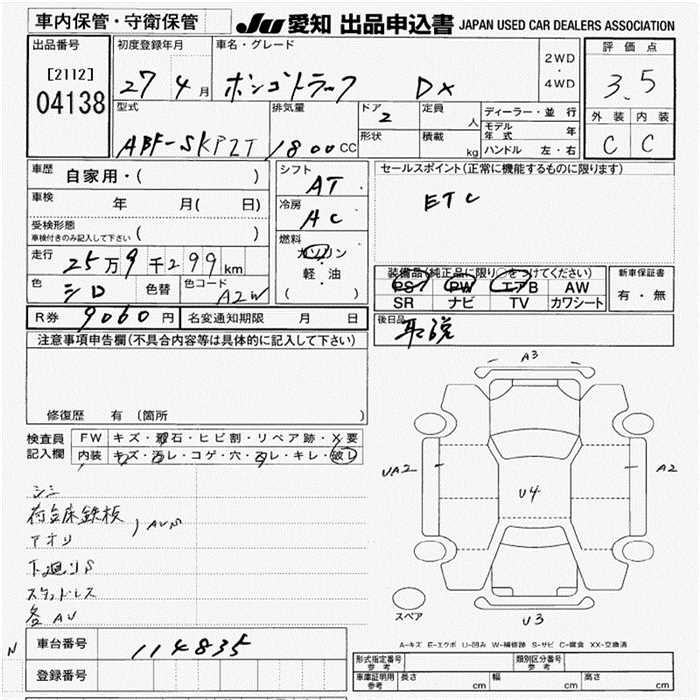 車内保管・守衛保管
JU 愛知 出品申込書 JAPAN USED CAR DEALERS ASSOCIATION
出品番号
[2112]
04138
初度登録年月
27 4月
車名・グレード
ボンゴトラック DX
2WD
・
4WD
評価点
3.5
外装 内装
C C
型式
ABF-SKP2T
排気量
1800CC
ドア
2
定員
人
形状
積載
kg
ディーラー・並行
モデル年式 年
ハンドル 左・右
車歴 自家用・( )
車検 年 月( 日)
受検形態
車検付きのみ記入して下さい ( )
走行 25万9千299km
色 シロ 色替 色コード A2W
シフト
AT
冷房
AC
燃料
ガソリン
軽・油
( )
セールスポイント(正常に機能するものに限ります)
ETC
装備品(純正品に限り○をつけてください)
PS PW エアB AW
SR ナビ TV カワシート
新車保証書
有・無
R券 9060円 名変通知期限 月 日
後日品 取説
注意事項申告欄(不具合内容等は具体的に記入して下さい)
修復歴 有 (箇所 )
検査員
記入欄
FW キズ・飛石・ヒビ割・リペア跡・X要
内装 キズ・汚レ・コゲ・穴・スレ・キレ・破レ
シミ
荷台床鉄板
アオリ
) AUS
下廻りS
スタッドレス
各AU
A3
UA2
A2
U4
U3
スペア
A-キズ E-エクボ U-凹み W-補修跡 S-サビ C-腐食 XX-交換済
N
車台番号 114835
登録番号
形式指定番号
参考
類別区分番号
参考
車庫証明用
参考
長さ cm 幅 cm 高さ cm